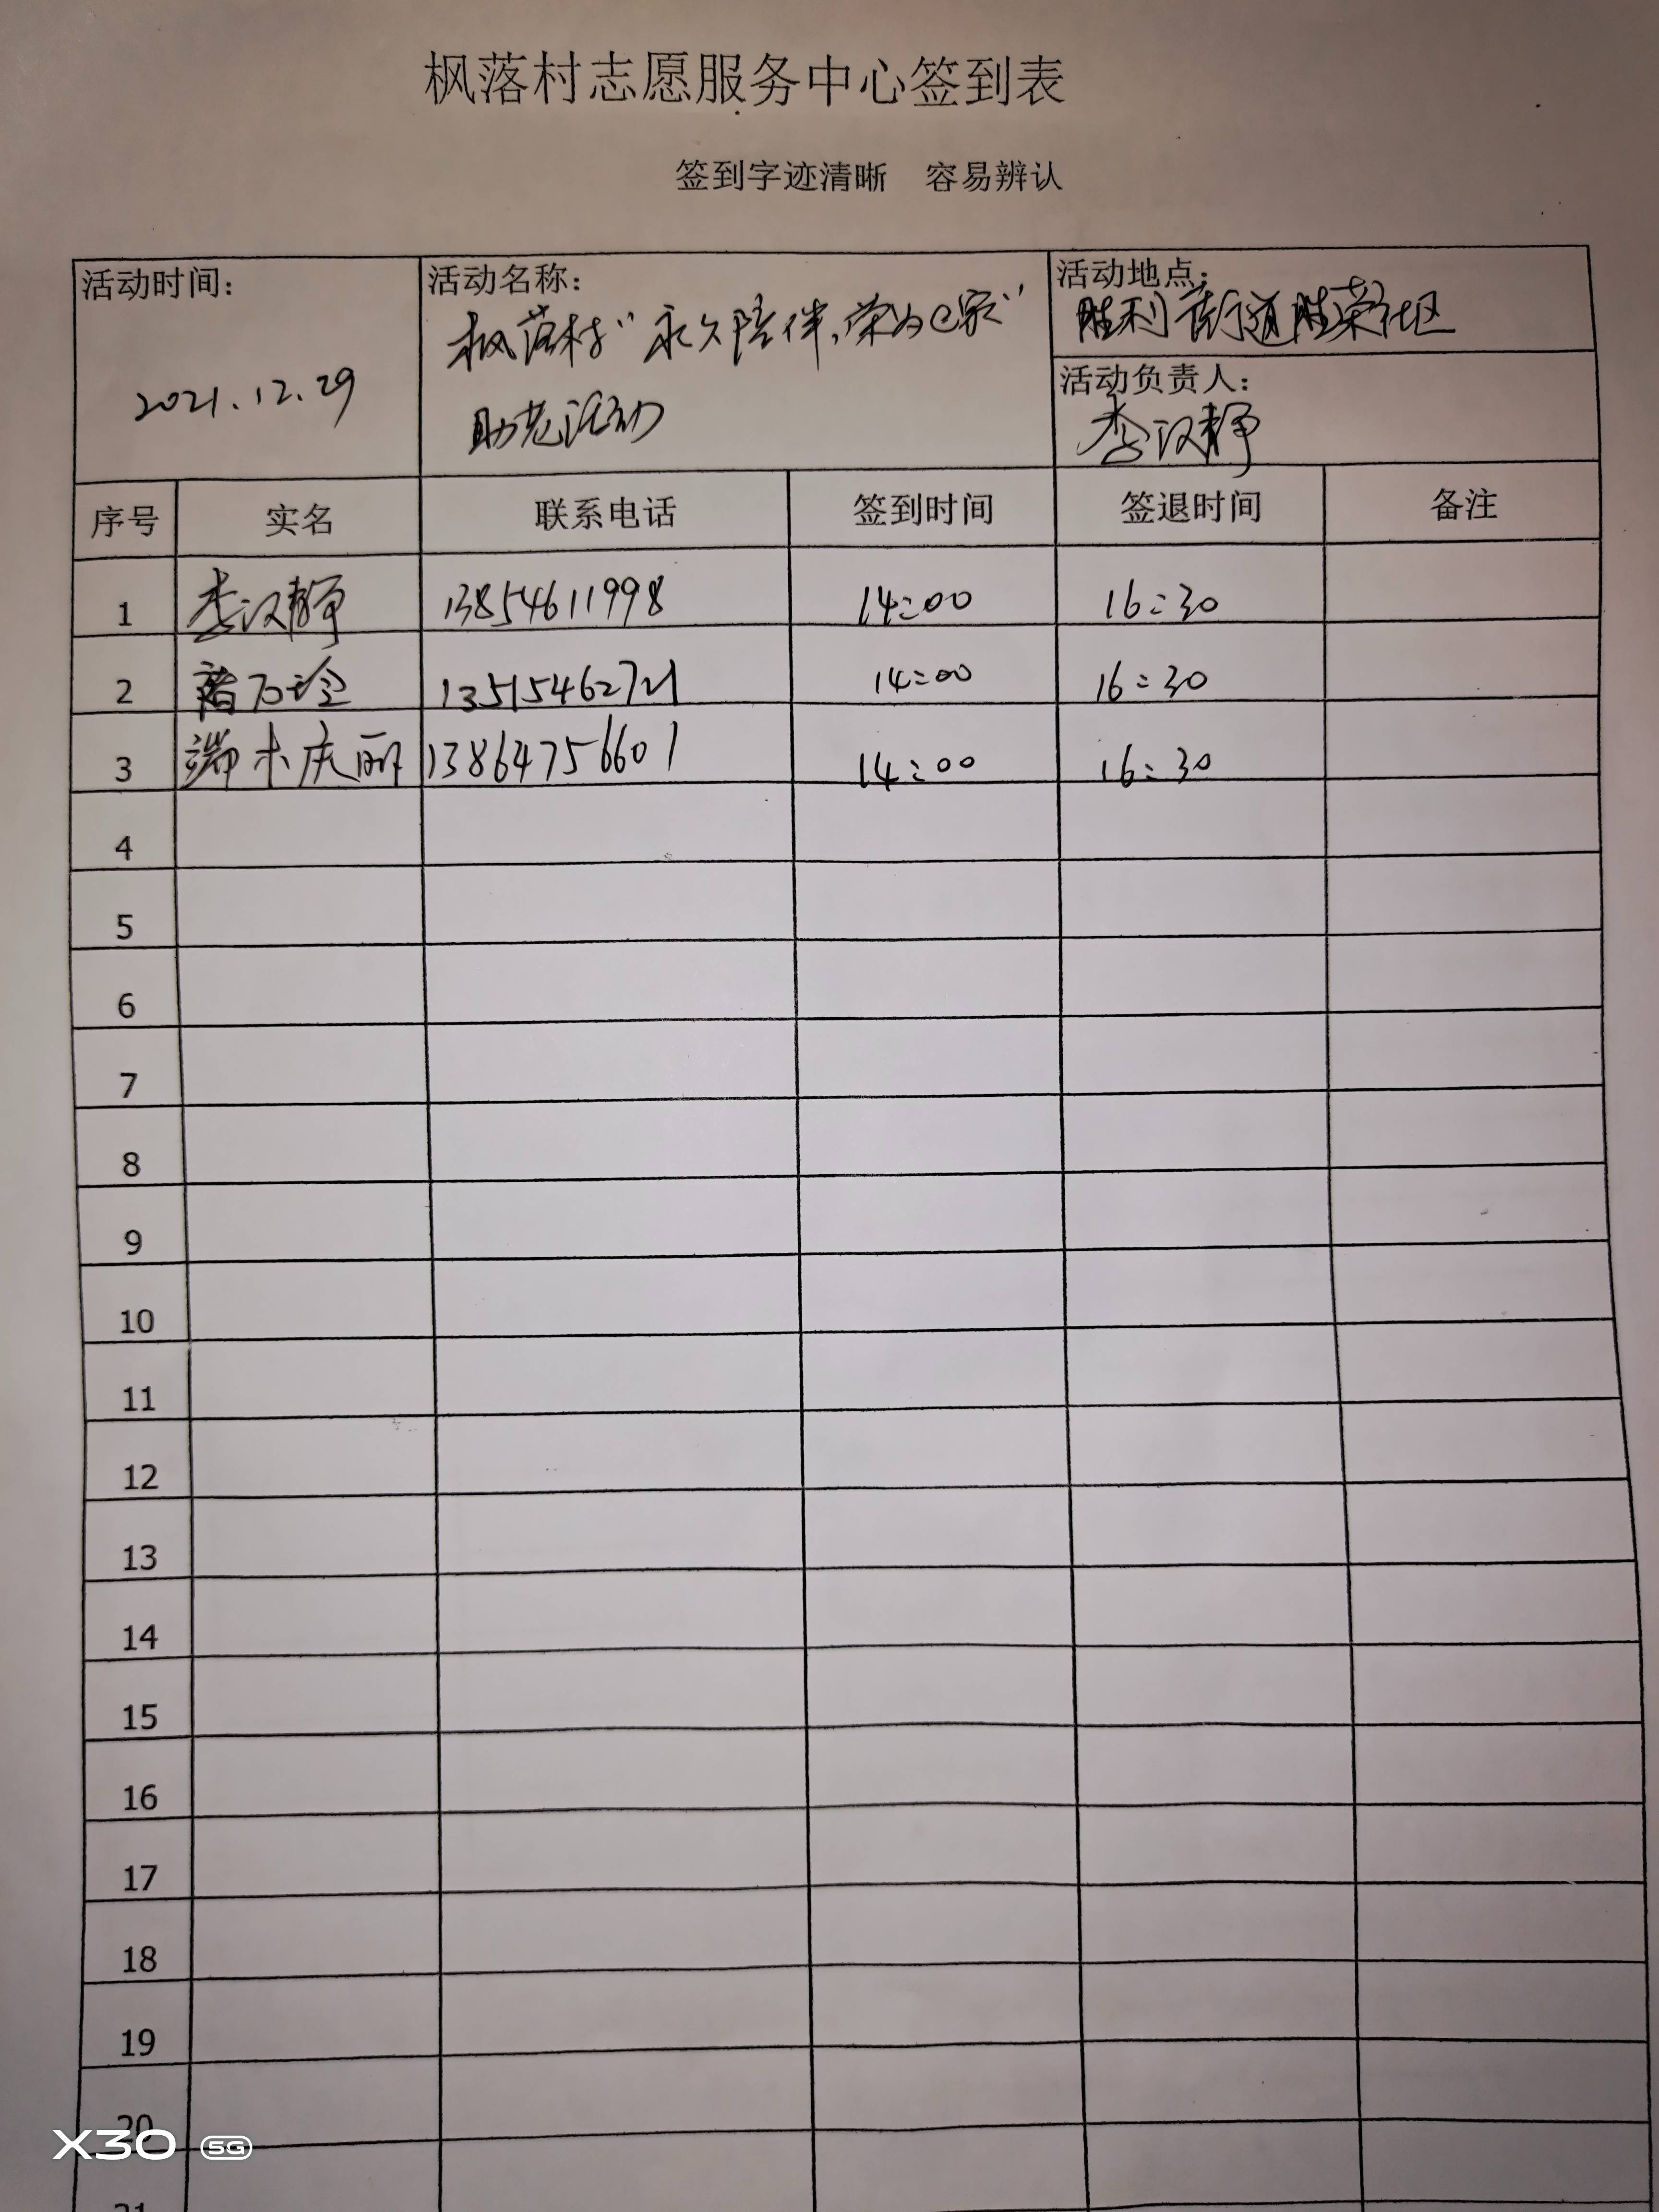 枫落村志愿服务中心签到表
签到字迹清晰 容易辨认
活动时间： 活动名称： 活动地点：
枫落村“永久陪伴,荣为e家” 胜利街道胜荣社区
2021.12.29 助老活动 活动负责人：
李汉静
序号 实名 联系电话 签到时间 签退时间 备注
1 李汉静 13854611998 14:00 16:30
2 13515462721 14:00 16:30
3 端木庆丽 13864756601 14:00 16:30
4
5
6
7
8
9
10
11
12
13
14
15
16
17
18
19
20
21
X30 5G